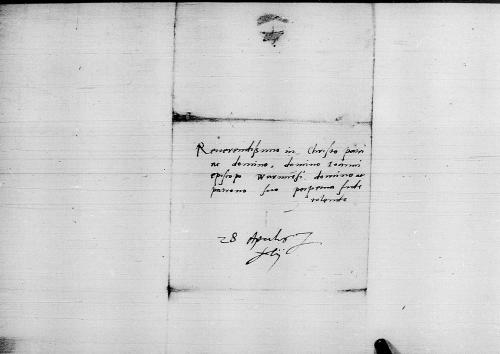 Reverendissimo in Christo patri
ac domino, domino Ioanni
episcopo Warmiensi domino ac
patrono suo perpetua fide
colendo
28 Aprilis